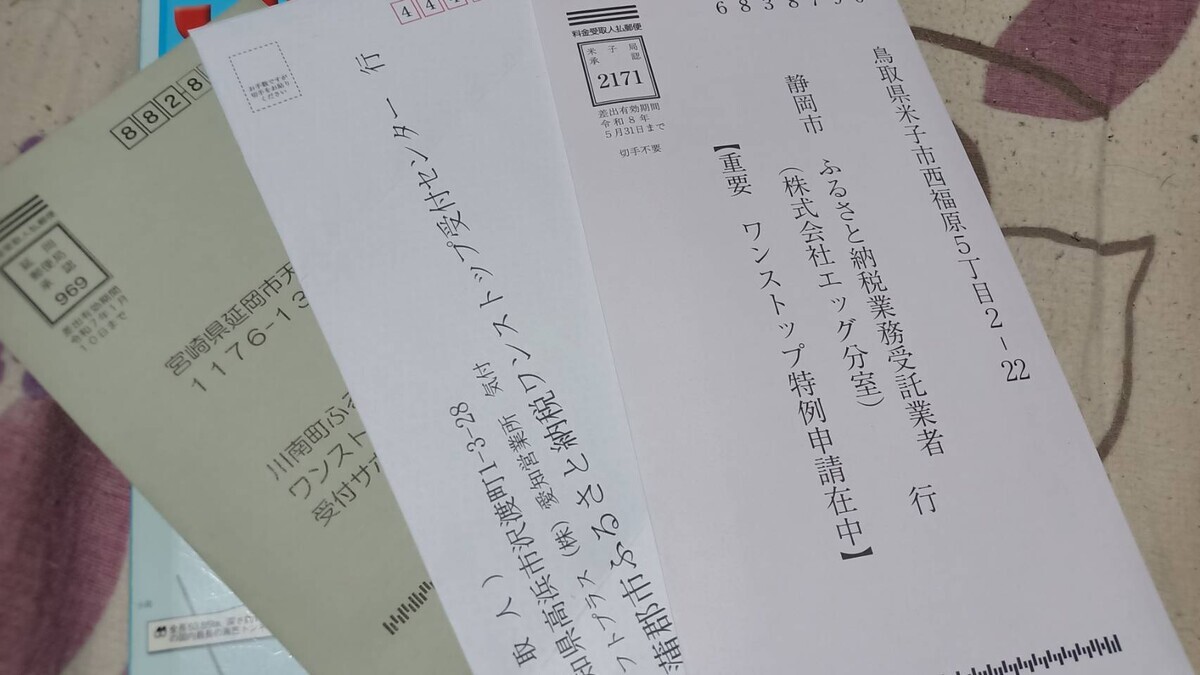 料金受取人払郵便
米子局
承認
2171
差出有効期間
令和8年
5月31日まで
切手不要
鳥取県米子市西福原5丁目2-22
静岡市 ふるさと納税業務受託業者 行
(株式会社エッグ分室)
【重要 ワンストップ特例申請在中】
お手数ですが
切手をお貼り
ください
取人)
知県高浜市沢渡町1-3-28
フトプラス(株) 愛知営業所 気付
蒲郡市ふるさと納税ワンストップ受付センター 行
8828
料金受取人払郵便
延岡
郵便局
承認
969
差出有効期間
令和7年1月
10日まで
宮崎県延岡市天
1176-13
川南町ふる
ワンスト
受付サポ